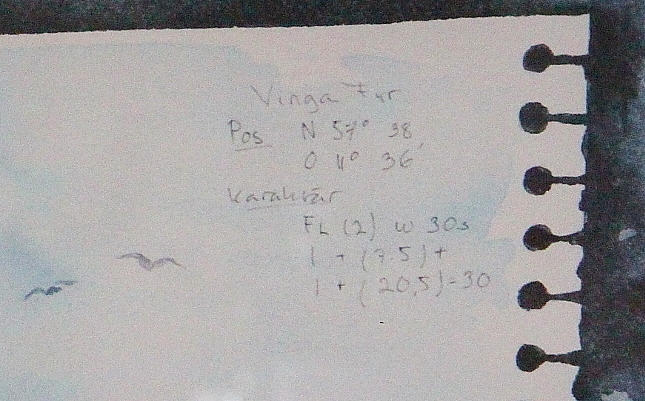 Vinga Fyr
Pos N 57° 38
O 11° 36'
Karaktär
FL (2) w 30s
1 + (7.5) +
1 + (20,5)=30